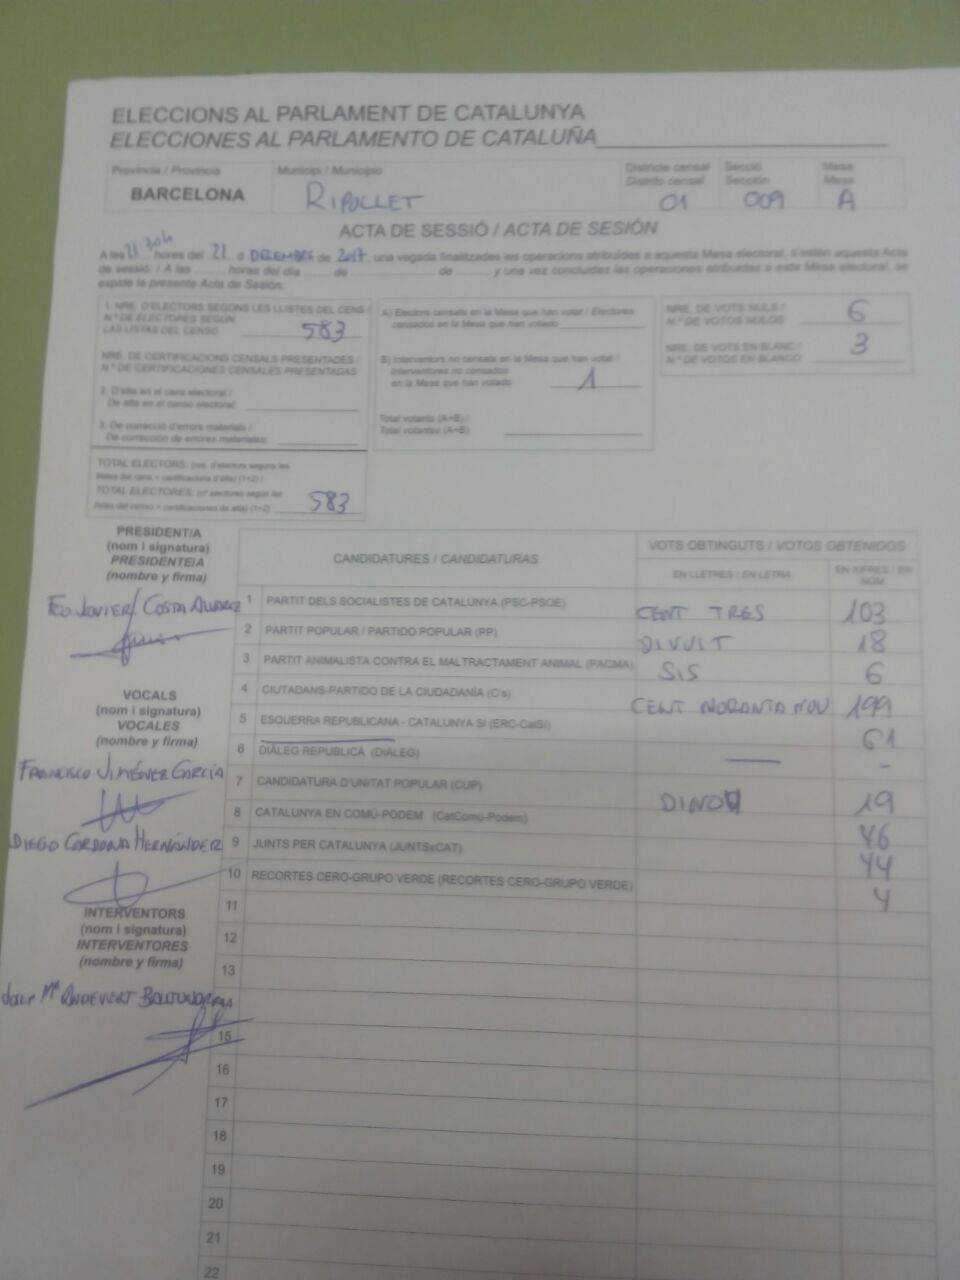 ELECCIONS AL PARLAMENT DE CATALUNYA
ELECCIONES AL PARLAMENTO DE CATALUÑA
Província / Provincia
BARCELONA
Municipi / Municipio
RIPOLLET
Districte censal
Distrito censal
01
Secció
Sección
009
Mesa
Mesa
A
ACTA DE SESSIÓ / ACTA DE SESIÓN
A les 21 30h hores del 21 d DECEMBRE de 2017, una vegada finalitzades les operacions atribuïdes a aquesta Mesa electoral, s'estén aquesta Acta
de sessió: / A las horas del día de de y una vez concluidas las operaciones atribuidas a esta Mesa electoral, se
expide la presente Acta de Sesión:
1. NRE. D'ELECTORS SEGONS LES LLISTES DEL CENS /
N.º DE ELECTORES SEGÚN
LAS LISTAS DEL CENSO 583
NRE. DE CERTIFICACIONS CENSALS PRESENTADES /
N.º DE CERTIFICACIONES CENSALES PRESENTADAS
2. D'alta en el cens electoral: /
De alta en el censo electoral:
3. De correcció d'errors materials /
De corrección de errores materiales:
TOTAL ELECTORS: (nre. d'electors segons les
llistes del cens + certificacions d'alta) (1+2) /
TOTAL ELECTORES: (nº electores según las
listas del censo + certificaciones de alta) (1+2) 583
A) Electors censats en la Mesa que han votat / Electores
censados en la Mesa que han votado
B) Interventors no censats en la Mesa que han votat /
Interventores no censados
en la Mesa que han votado 1
Total votants (A+B) /
Total votantes (A+B)
NRE. DE VOTS NULS /
N.º DE VOTOS NULOS 6
NRE. DE VOTS EN BLANC /
N.º DE VOTOS EN BLANCO 3
PRESIDENT/A
(nom i signatura)
PRESIDENTE/A
(nombre y firma)
FCO JAVIER COSTA ALVAREZ
VOCALS
(nom i signatura)
VOCALES
(nombre y firma)
FRANCISCO JIMÉNEZ GARCÍA
DIEGO CARDONA HERNÁNDEZ
INTERVENTORS
(nom i signatura)
INTERVENTORES
(nombre y firma)
CANDIDATURES / CANDIDATURAS
VOTS OBTINGUTS / VOTOS OBTENIDOS
EN LLETRES / EN LETRA
EN XIFRES / EN
NÚM.
1 PARTIT DELS SOCIALISTES DE CATALUNYA (PSC-PSOE) CENT TRES 103
2 PARTIT POPULAR / PARTIDO POPULAR (PP) DIVUIT 18
3 PARTIT ANIMALISTA CONTRA EL MALTRACTAMENT ANIMAL (PACMA) SIS 6
4 CIUTADANS-PARTIDO DE LA CIUDADANÍA (C's) CENT NORANTA NOU 199
5 ESQUERRA REPUBLICANA - CATALUNYA SÍ (ERC-CatSí) 61
6 DIÀLEG REPUBLICÀ (DIÀLEG) — -
7 CANDIDATURA D'UNITAT POPULAR (CUP) DINOU 19
8 CATALUNYA EN COMÚ-PODEM (CatComú-Podem) 46
9 JUNTS PER CATALUNYA (JUNTSxCAT) 44
10 RECORTES CERO-GRUPO VERDE (RECORTES CERO-GRUPO VERDE) 4
11
12
13
15
16
17
18
19
20
21
22